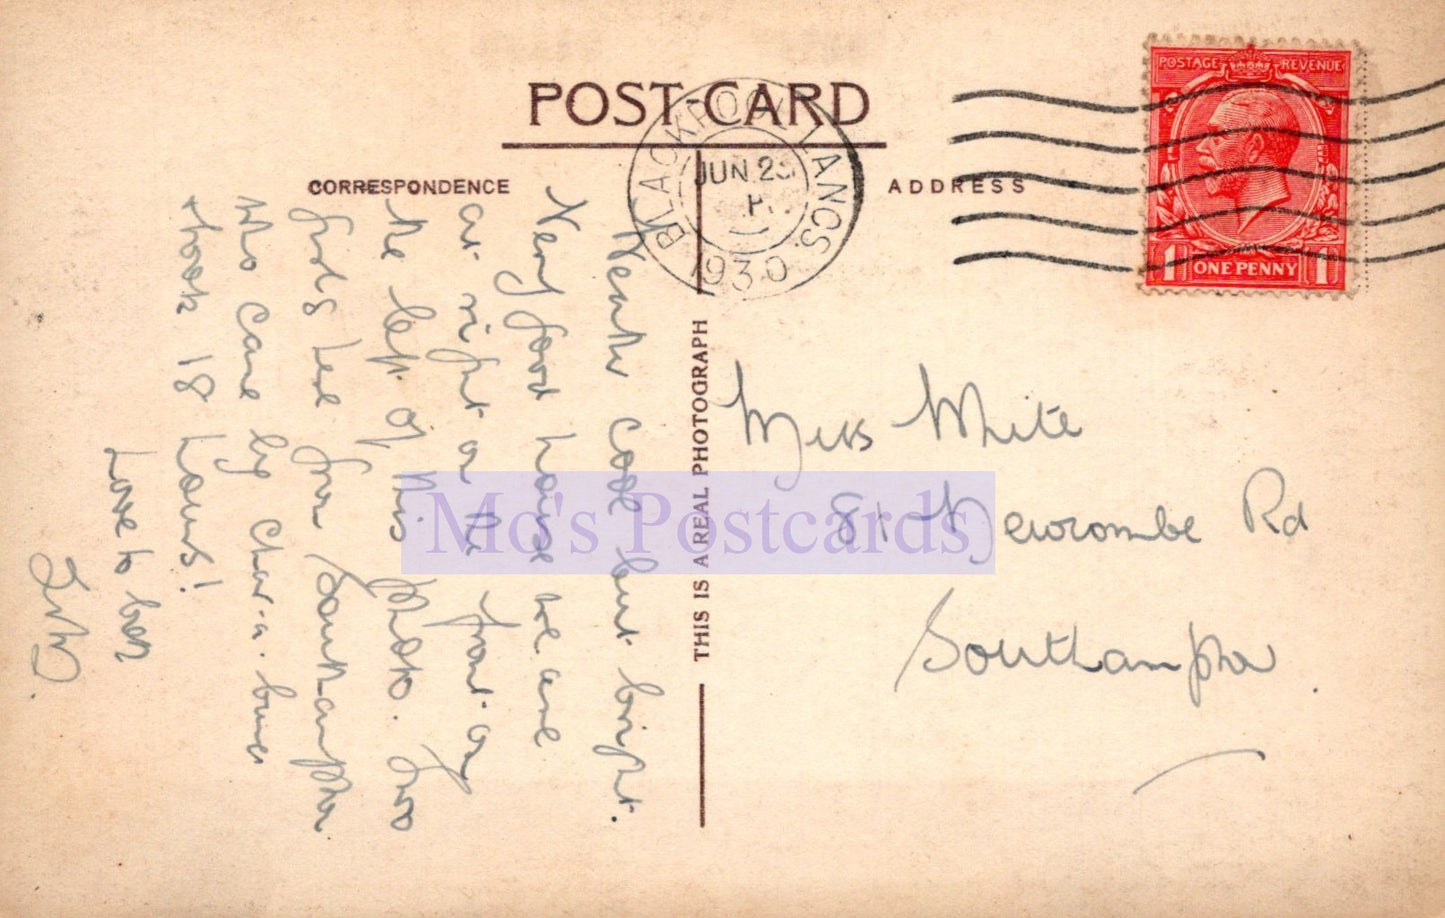 POST-CARD
CORRESPONDENCE
ADDRESS
BLACKPOOL LANCS.
JUN 2
1930
POSTAGE REVENUE
1 ONE PENNY 1
THIS IS A REAL PHOTOGRAPH
Mo's Postcards
Miss White
81 Newcombe Rd
Southampton
Weather cool but bright.
Very good house we are
at right on the front on
the left of this photo. Two
girls here from Southampton
who came by char-a-banc
& took 18 hours!
Love to